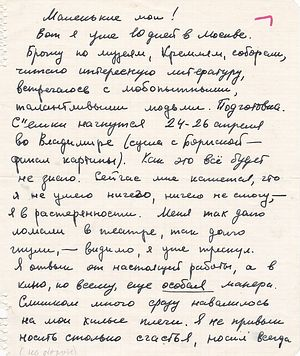 Маленькие мои!
Вот я уже 10 дней в Москве.
Брожу по музеям, Кремлям, соборам,
читаю интересную литературу,
встречаюсь с любопытными,
талантливыми людьми. Подготовка.
С"ёмки начнутся 24-26 апреля
во Владимире (сцена с
финал картины). Как это всё будет
не знаю. Сейчас мне кажется, что
я не умею ничего, ничего не смогу, —
я в растерянности. Меня так долго
ломали в театре, так долго
гнули, — видимо, я уже треснул.
Я отвык от настоящей работы, а в
кино, ко всему, ещё особая манера.
Слишком много сразу навалилось
на мои хилые плечи. Я не привык
носить столько счастья, носил всегда